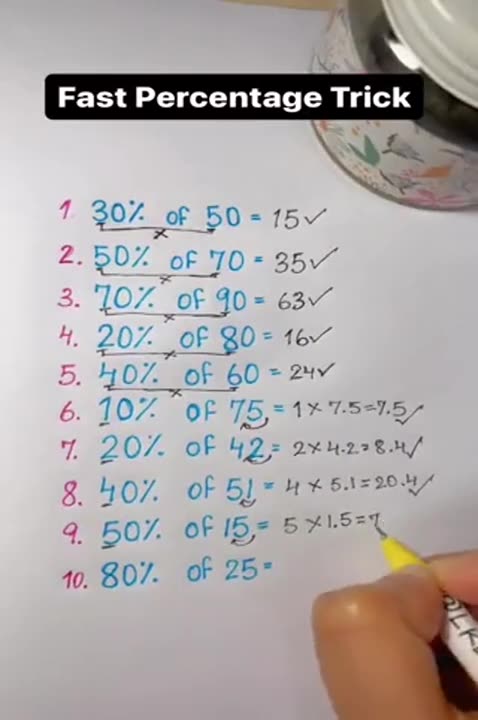 Fast Percentage Trick
1. 30% of 50 = 15✓
2. 50% of 70 = 35✓
3. 70% of 90 = 63✓
4. 20% of 80 = 16✓
5. 40% of 60 = 24✓
6. 10% of 75 = 1 × 7.5 = 7.5✓
7. 20% of 42 = 2 × 4.2 = 8.4✓
8. 40% of 51 = 4 × 5.1 = 20.4✓
9. 50% of 15 = 5 × 1.5 = 7
10. 80% of 25 =